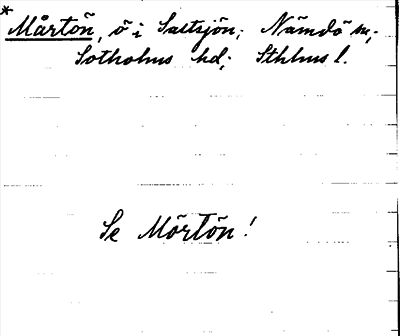 * Mårtön, ö i Saltsjön; Nämdö sn;
Sotholms hd; Sthlms l.
Se Mörtön!